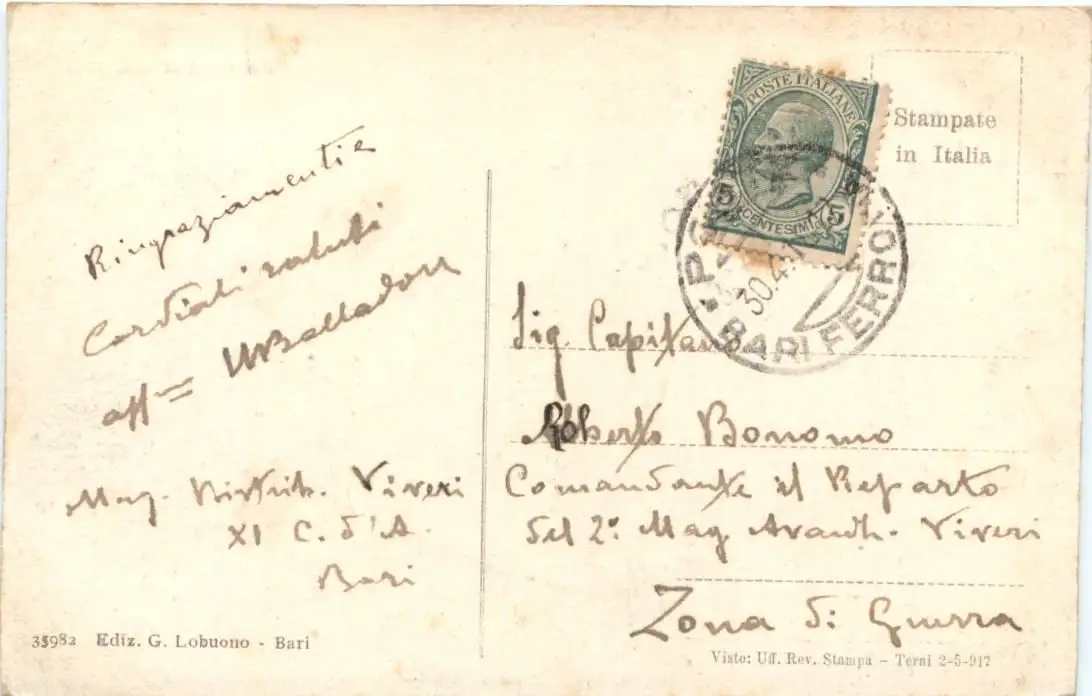 Ringraziamenti e
Cordiali saluti
aff=
Mag. Distrib. Viveri
XI C. d'A.
Bari
35982 Ediz. G. Lobuono - Bari
POSTE ITALIANE
5 CENTESIMI 5
BARI FERROV
30.4.1
Stampate
in Italia
Sig. Capitano
Roberto Bonomo
Comandante il Reparto
del 2º Mag. Avanh. Viveri
Zona di Guerra
Visto: Uff. Rev. Stampa - Terni 2-5-917